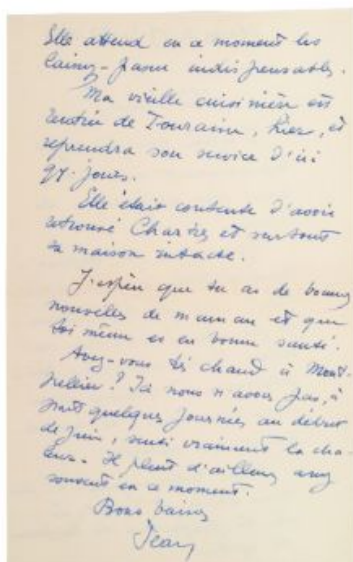 Elle attend en ce moment les
laissez-passer indispensables.
Ma vieille cuisinière est
rentrée de Touraine, hier, et
reprendra son service d'ici
qq. jours.
Elle était contente d'avoir
retrouvé Chartres et surtout
sa maison intacte.
J'espère que tu as de bonnes
nouvelles de maman et que
toi même es en bonne santé.
Avez-vous très chaud à Mont-
pellier ? Ici nous n'avons pas, à
part quelques journées au début
de juin, senti vraiment la cha-
leur. Il pleut d'ailleurs assez
souvent en ce moment.
Bons baisers
Jean